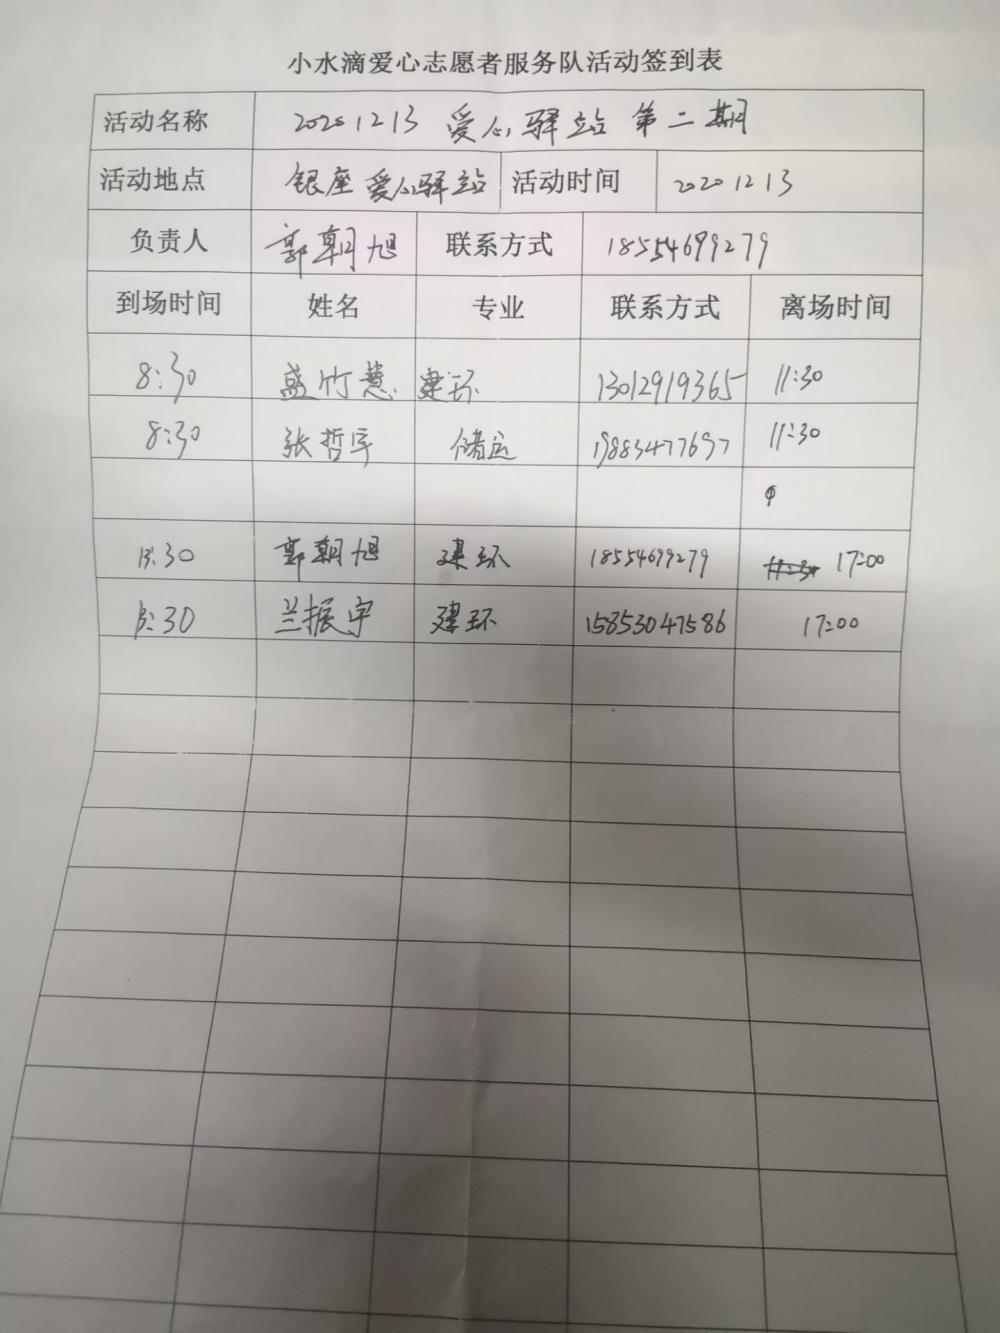 小水滴爱心志愿者服务队活动签到表
活动名称 20201213 爱心驿站 第二期
活动地点 银座爱心驿站 活动时间 20201213
负责人 郭朝旭 联系方式 18554699279
到场时间 姓名 专业 联系方式 离场时间
8:30 盛竹慧 建环 13012919365 11:30
8:30 张哲宇 储运 19883477697 11:30
13:30 郭朝旭 建环 18554699279 17:00
13:30 兰振宇 建环 15853047586 17:00